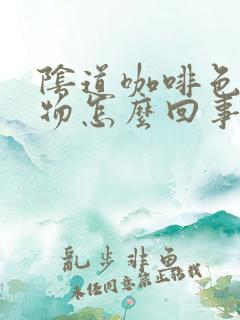 陰道咖啡色
物怎麼回事
亂步非魚
未經同意禁止轉載